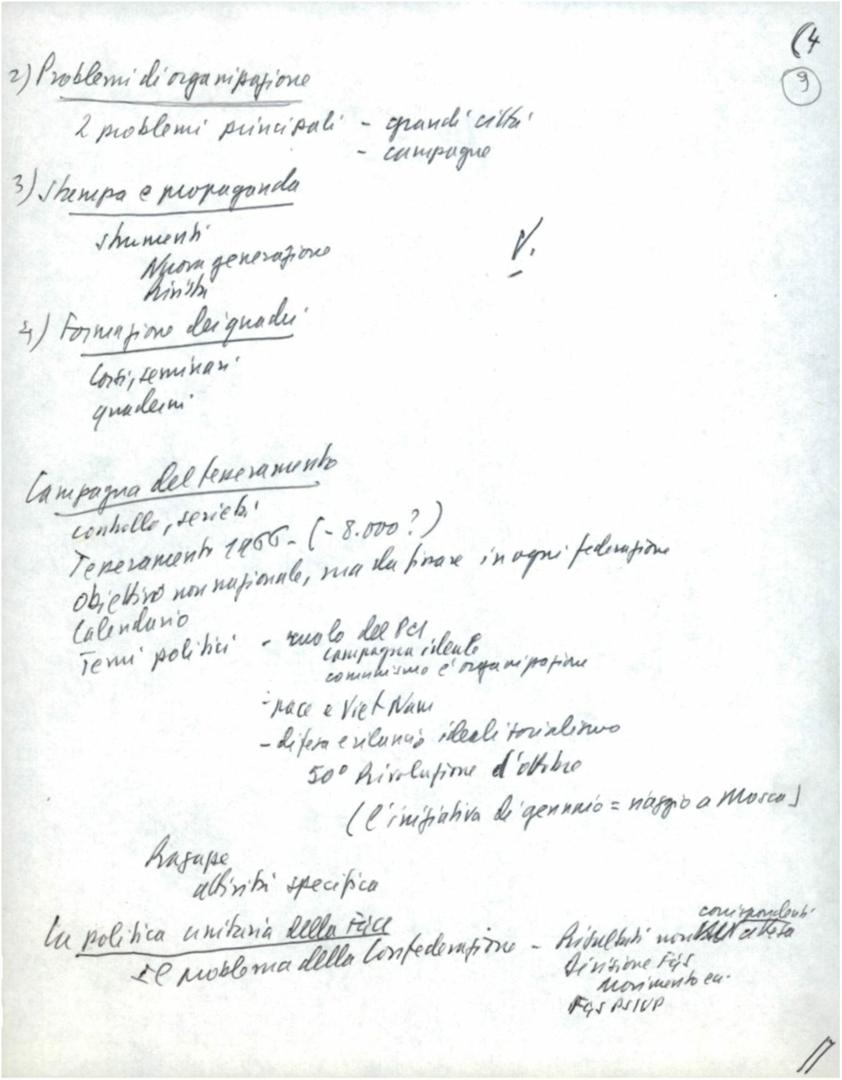 (4
9
2) Problemi di organizzazione
2 problemi principali - grandi città
- campagne
3) Stampa e propaganda
strumenti
Nuova generazione
Rivista
V.
4) Formazione dei quadri
Corsi, seminari
quaderni
Campagna del tesseramento
controllo, serietà
Tesseramento 1966 - (- 8.000?)
Obiettivo non nazionale, ma da fissare in ogni federazione
Calendario
Temi politici - ruolo del PCI
campagna ideale
comunismo e organizzazione
- pace e Viet Nam
- difesa e rilancio ideali socialismo
50° Rivoluzione d'ottobre
(l'iniziativa di gennaio = viaggio a Mosca)
Ragazze
attività specifica
La politica unitaria della FGCI
Il problema della Confederazione - Risultati non corrispondenti
Divisione FGS
Movimento
FGS PSIUP